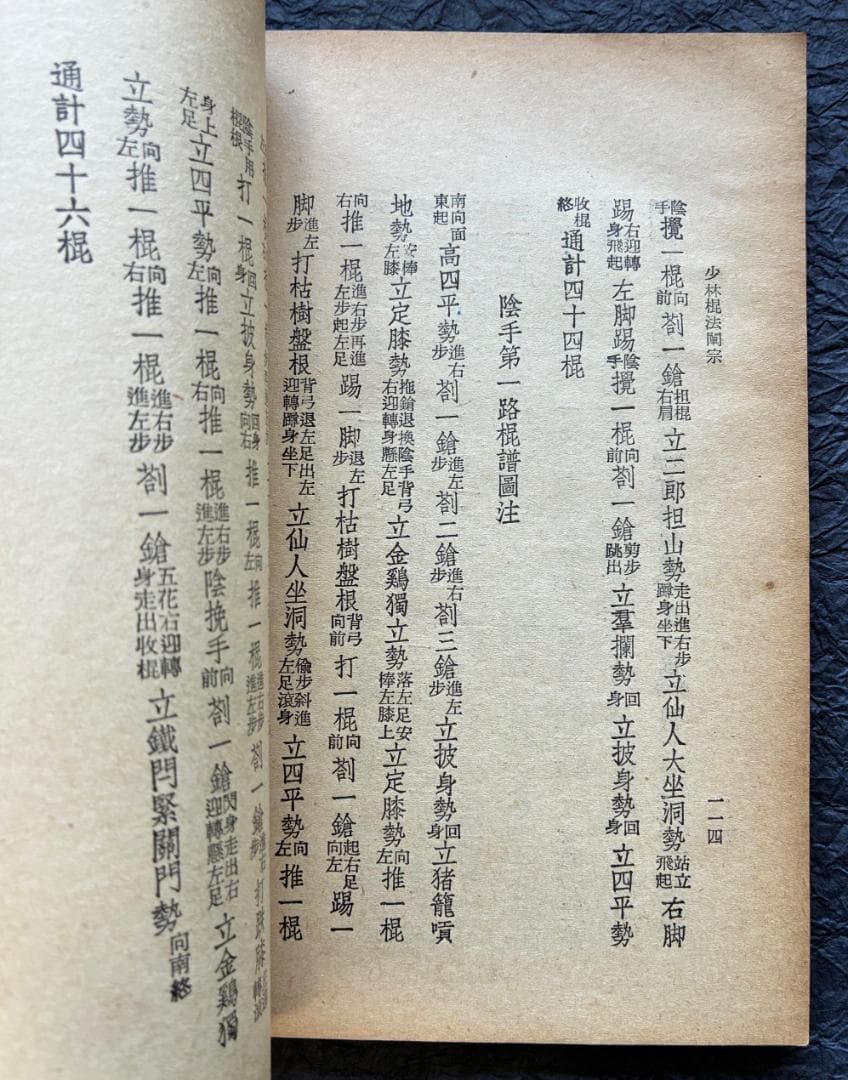 少林棍法闡宗
一一四
陰手攪一棍向前劄一鎗担棍右肩立二郎担山勢走出進右步蹲身坐下立仙人大坐洞勢站立飛起右脚
踢右迎轉身飛起左脚踢陰手攪一棍向前劄一鎗剪步跳出立羣攔勢回身立披身勢回身立四平勢
收棍終通計四十四棍
陰手第一路棍譜圖注
南向面東起高四平勢進右步劄一鎗進左步劄二鎗進右步劄三鎗進左步立披身勢回身立猪籠嗊
地勢安棒左膝立定膝勢拖鎗退換陰手背弓右迎轉身懸左足立金鷄獨立勢落左足安棒左膝上立定膝勢向左推一棍
向右推一棍進右步再進左步起左足踢一脚退左步打枯樹盤根背弓向前打一棍向前劄一鎗起右足向左踢一
脚進左步打枯樹盤根背弓退左足出左迎轉蹲身坐下立仙人坐洞勢偷步斜進左足滾身立四平勢向左推一棍
陰手用棍根打一棍回身立披身勢回身向右推一棍向左推一棍進右步進左步劄一鎗進右步打
身上左足立四平勢向左推一棍向右推一棍進右步進左步陰挽手向前劄一鎗閃身走出右迎轉懸左足立金鷄獨
立勢向左推一棍向右推一棍進右步進左步劄一鎗五花右迎轉身走出收棍立鐵閂緊關門勢向南終
通計四十六棍